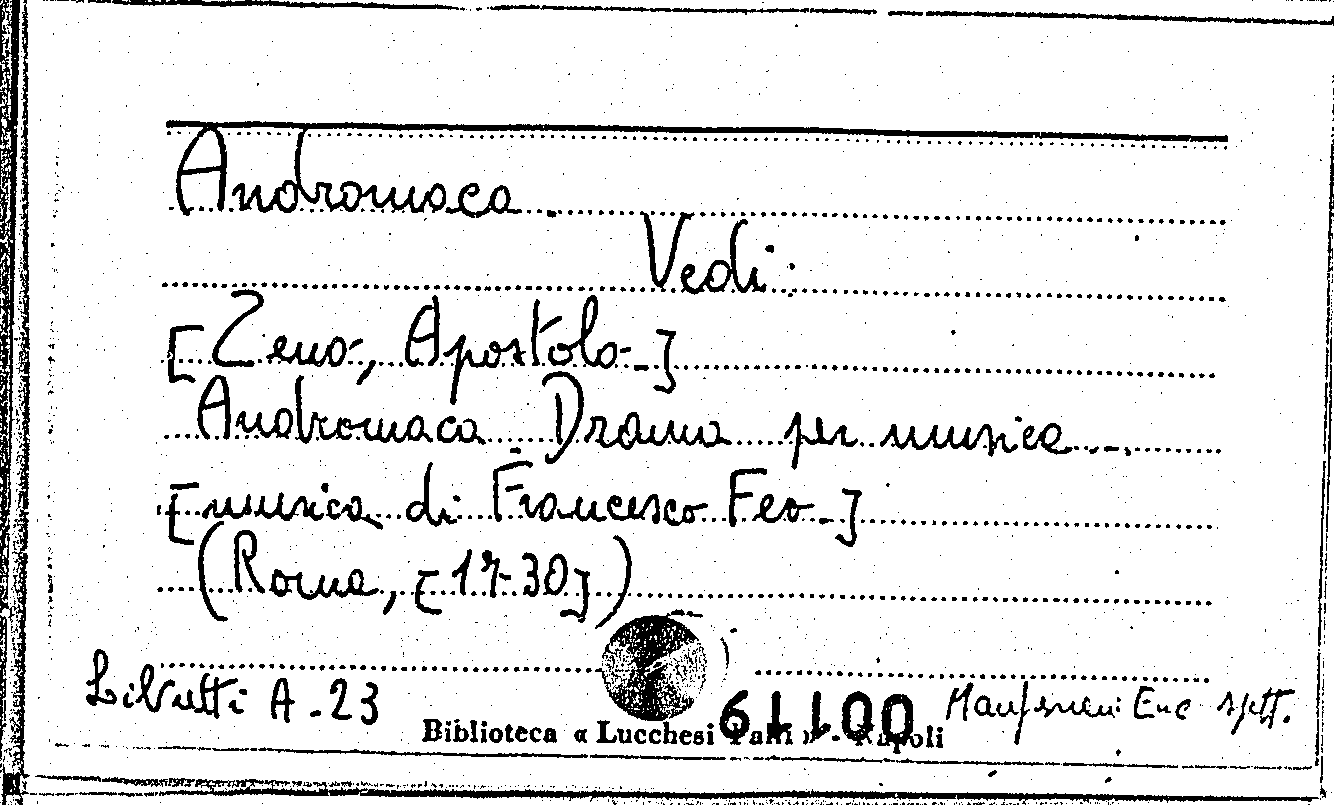 Andromaca.
Vedi:
[Zeno, Apostolo.]
Andromaca. Drama per musica...
[musica di Francesco Feo.]
(Roma, [1730])
Libretti A.23
Biblioteca « Lucchesi Palli » - Napoli
001179
Enc spett.